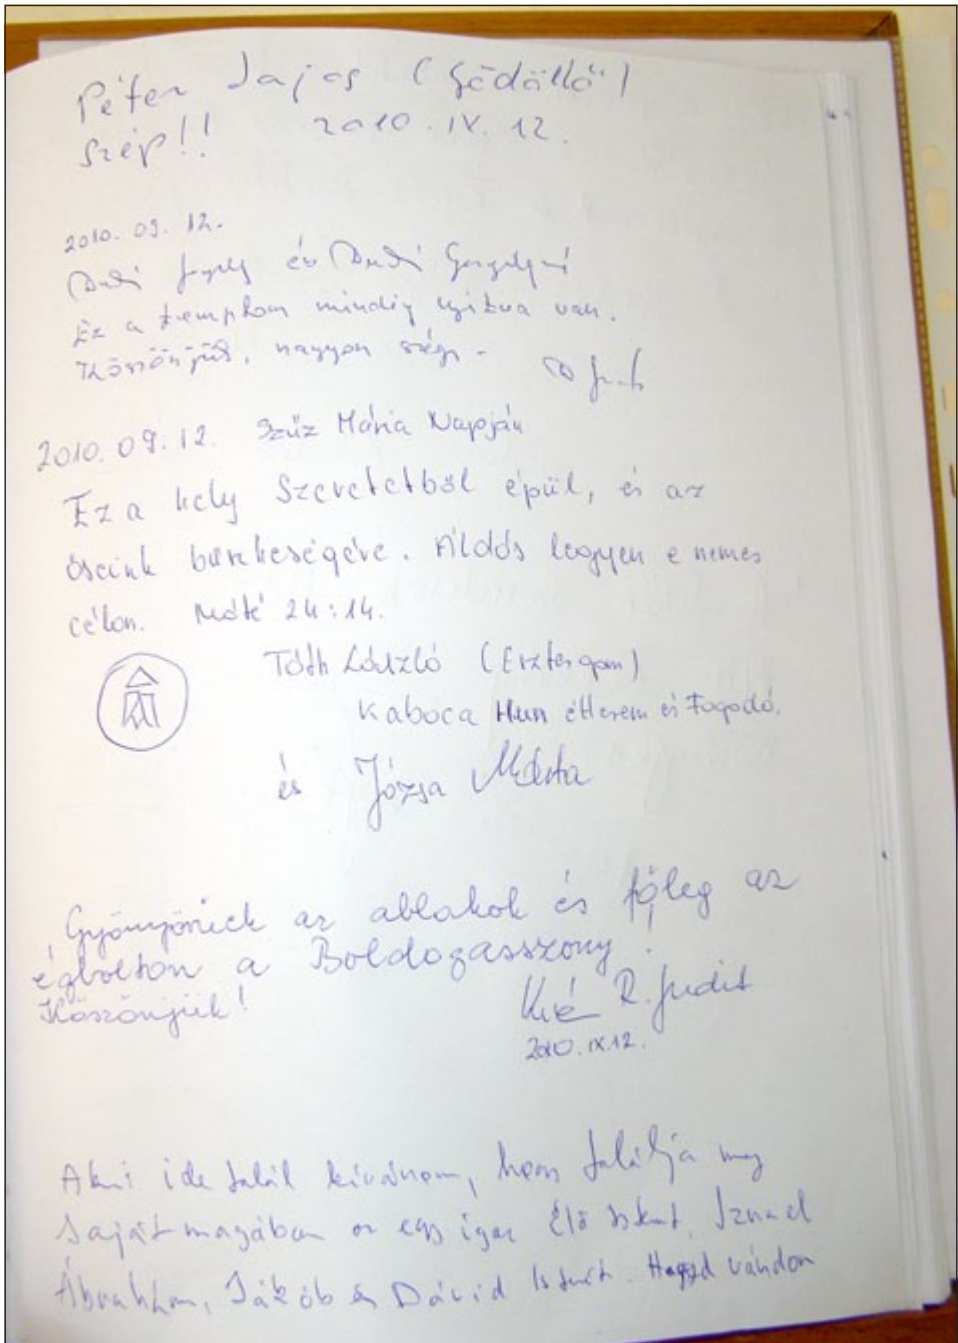 Péter Lajos (Gödöllő)
szép!! 2010. IX. 12.
2010. 09. 12.
és Gergelyné
Ez a templom mindig nyitva van.
Köszönjük, nagyon szép.
2010. 09. 12. Szűz Mária Napján
Ez a hely Szeretetből épül, és az
őseink büszkeségére. Áldás legyen e nemes
célon. Máté 24:14.
Tóth László (Esztergom)
Kaboca Hun étterem és Fogadó.
és Józsa Márta
Gyönyörűek az ablakok és főleg az
égbolton a Boldogasszony!
Köszönjük!
R. Judit
2010. IX. 12.
Aki ide talál kívánom, hogy találja meg
saját magában az egy igaz Élő Istent, Izrael
Ábrahám, Jákób és Dávid Istenét. vándor